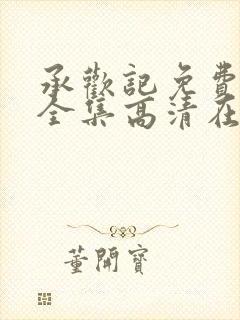 承歡記免費
全集高清在
董開寶